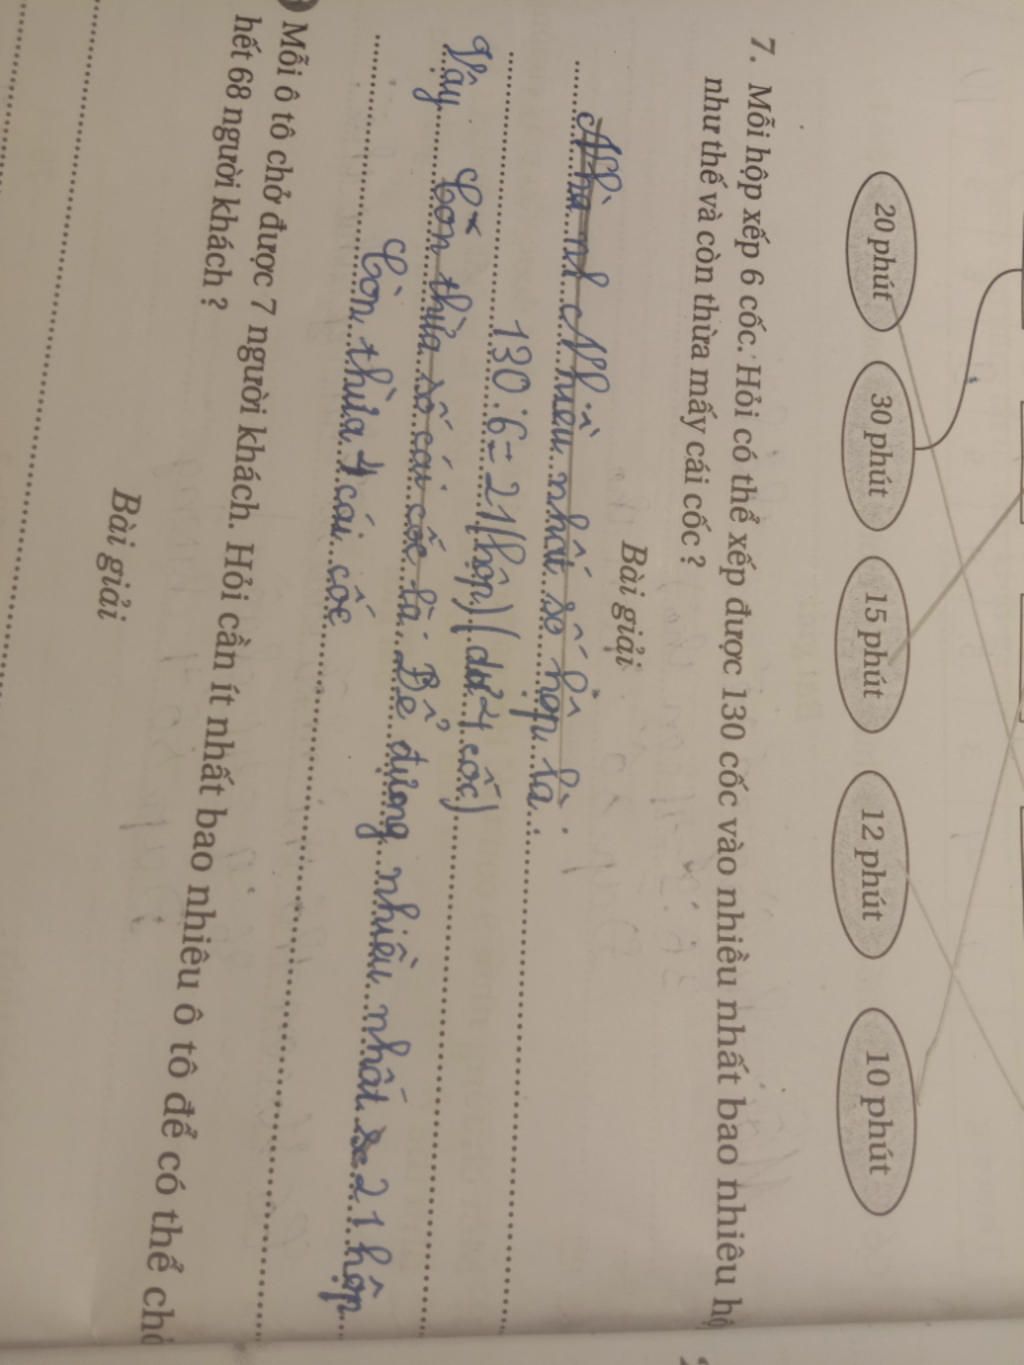 20 phút
30 phút
15 phút
12 phút
10 phút
7. Mỗi hộp xếp 6 cốc. Hỏi có thể xếp được 130 cốc vào nhiều nhất bao nhiêu
như thế và còn thừa mấy cái cốc ?
Bài giải
Nhiều nhất số hộp là:
130 : 6 = 21 (hộp) (dư 4 cốc)
Còn thừa số cái cốc là:
Vậy để đựng nhiều nhất 21 hộp
Còn thừa 4 cái cốc
Mỗi ô tô chở được 7 người khách. Hỏi cần ít nhất bao nhiêu ô tô để có thể
hết 68 người khách ?
Bài giải